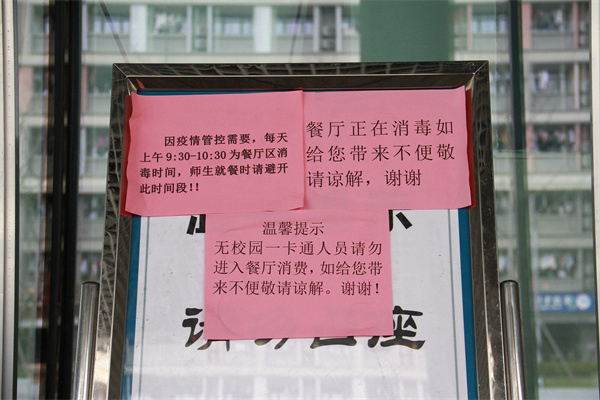 因疫情管控需要，每天
上午9:30-10:30为餐厅区消
毒时间，师生就餐时请避开
此时间段!!
餐厅正在消毒如
给您带来不便敬
请谅解，谢谢
温馨提示
无校园一卡通人员请勿
进入餐厅消费，如给您带
来不便敬请谅解。谢谢！
座